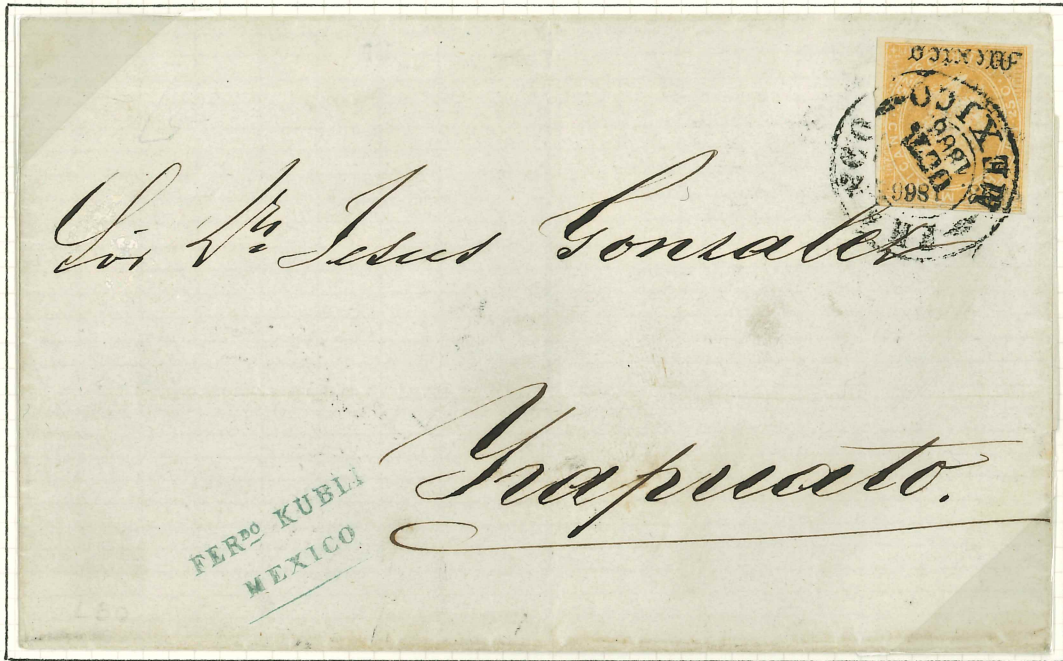 Mexico
MEXICO
1866
Sor Dn Jesus Gonzalez
Yrapuato.
FERDO KUBLI
MEXICO